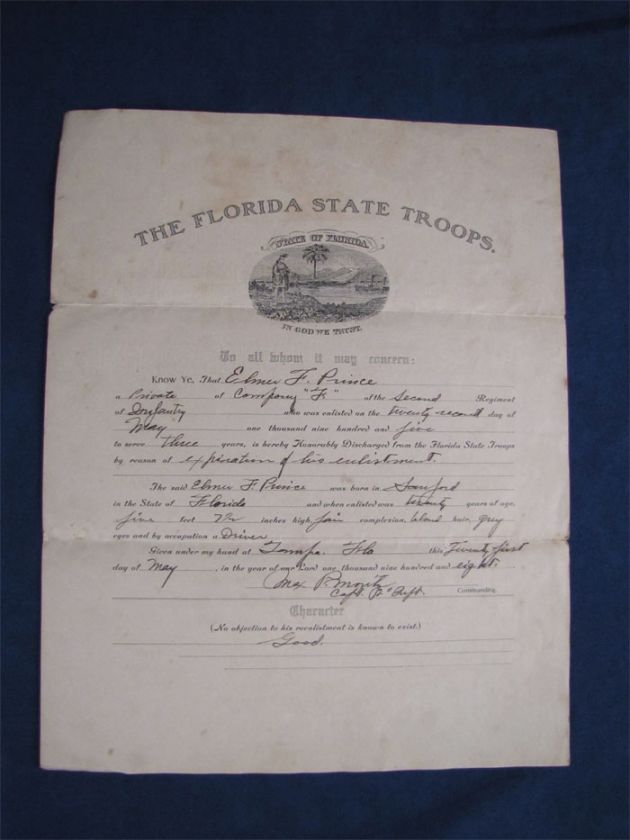 THE FLORIDA STATE TROOPS.
STATE OF FLORIDA
IN GOD WE TRUST.
To all whom it may concern:
Know Ye, That Elmer F. Prince
a Private of Company "F" of the Second Regiment
of Infantry who was enlisted on the twenty second day of
May one thousand nine hundred and five
to serve three years, is hereby Honorably Discharged from the Florida State Troops
by reason of expiration of his enlistment.
The said Elmer F. Prince was born in Sanford
in the State of Florida and when enlisted was twenty years of age,
five feet inches high, fair complexion, blond hair, grey
eyes and by occupation a Driver
Given under my hand at Tampa, Fla this Twenty first
day of May, in the year of our Lord one thousand nine hundred and eight.
Max P. Moritz
Capt. Commanding.
Character
(No objection to his reenlistment is known to exist.)
Good.